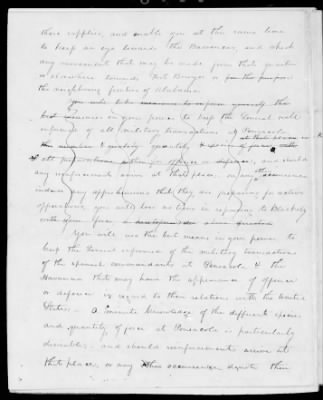 those supplies, and enable you at the same time
to keep an eye towards the Havannah, and check
any movement that may be made from that quarter
or elsewhere towards Fort Bowyer or for the purpose
the neighboring frontier of Alabama.
You will take measures to inform yourself the
best measures in your power to keep the General well
informed of all military transactions at Pensacola
at that place or
the number & quality quantity &
all for offence or defence, and should
any reinforcement arrive at that place or any other occurrence
induce any apprehensions that they are preparing for active
operations you will lose no time in repairing to Blakely
with your force
You will use the best means in your power to
keep the General informed of the military transactions
of the spanish commandants at Pensacola & the
Havannah that may have the appearance of offence
or defence in regard to their relations with the United
States. A minute knowledge of the different species
and quantity of force at Pensacola is particularly
desirable, and should reinforcements arrive at
that place, or any other occurrence denote their